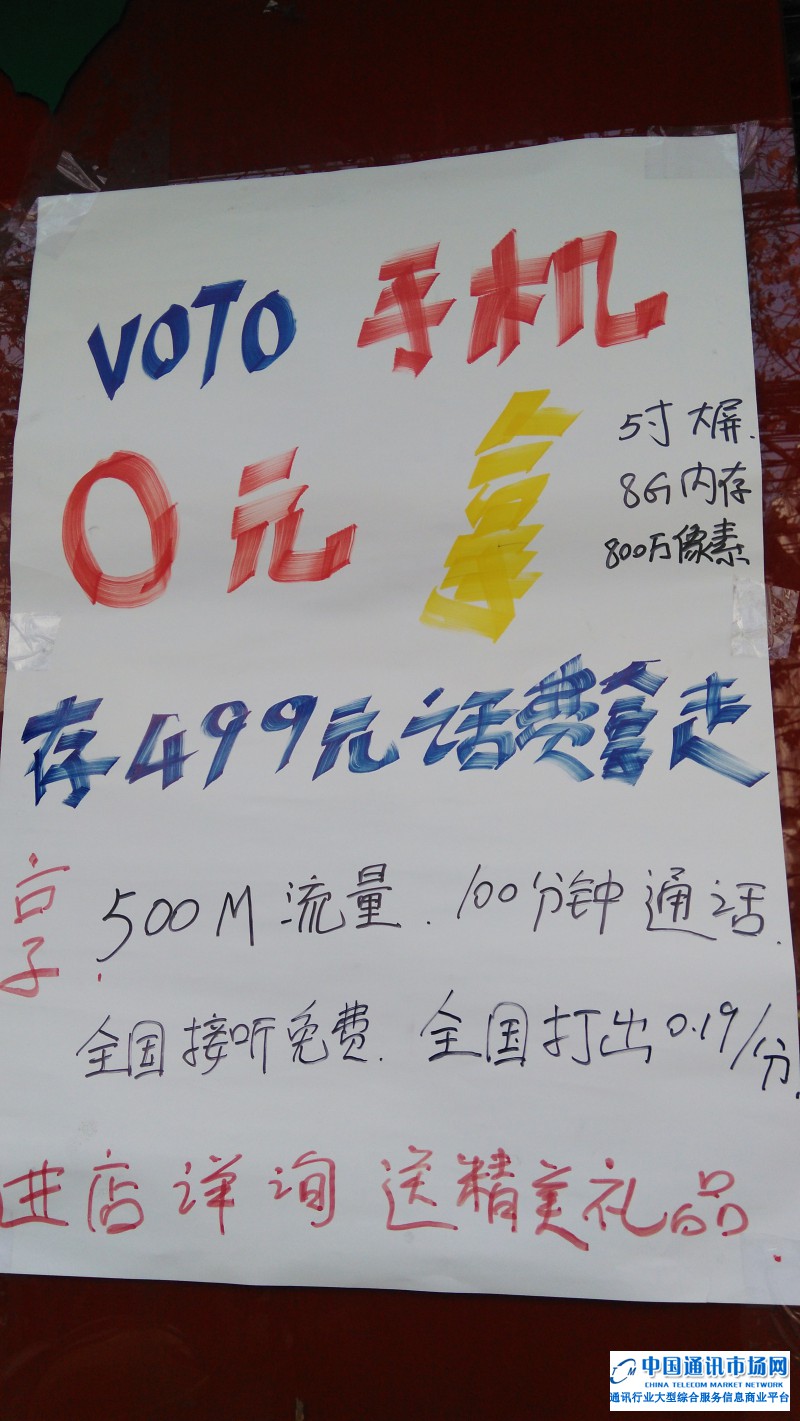 VOTO 手机
0元 拿
5寸大屏.
8G内存
800万像素
存499元话费拿走
含 500M流量.100分钟通话.
全国接听免费.全国打出0.19/分.
进店详询 送精美礼品.
中国通讯市场网
CHINA TELECOM MARKET NETWORK
通讯行业大型综合服务信息商业平台